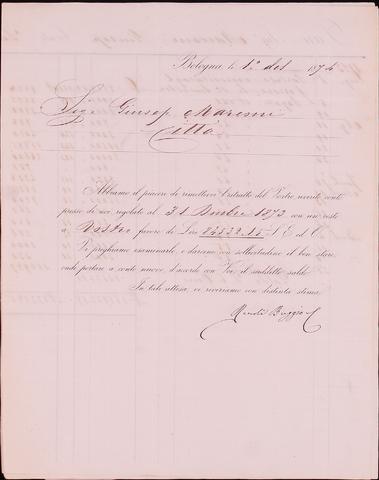 Bologna li 1º del 1874
Sig. Giusep. Maremi
Città
Abbiamo il piacere di rimettervi l'estratto del Vostro riverito conto
presso di noi regolato al 31 Dicmbre 1873 con un resto
a Vostro favore di Lire 24532.15
Vi preghiamo esaminarlo, e darcene con sollecitudine il ben stare,
onde portare a conto nuovo, d'accordo con Voi, il suddetto saldo.
In tale attesa, vi riveriamo con distinta stima.